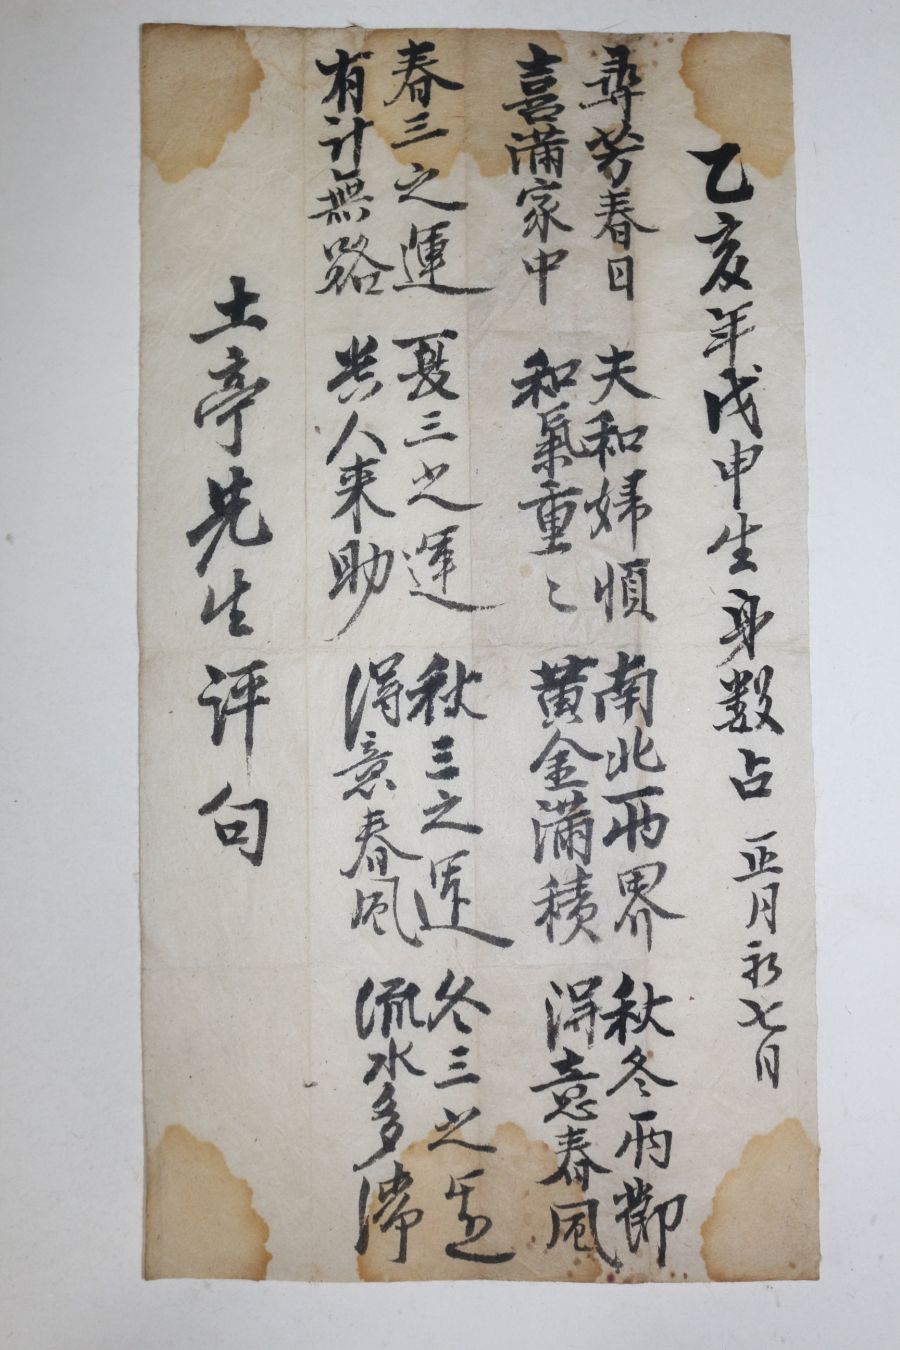 乙亥年戊申生身數占 正月初七日
尋芳春日 夫和婦順 南北兩界 秋冬兩節
喜滿家中 和氣重〻 黃金滿積 得意春風
春三之運 夏三之運 秋三之運 冬三之運
有計無路 共人来助 得意春風 流水多滯
土亭先生 评句